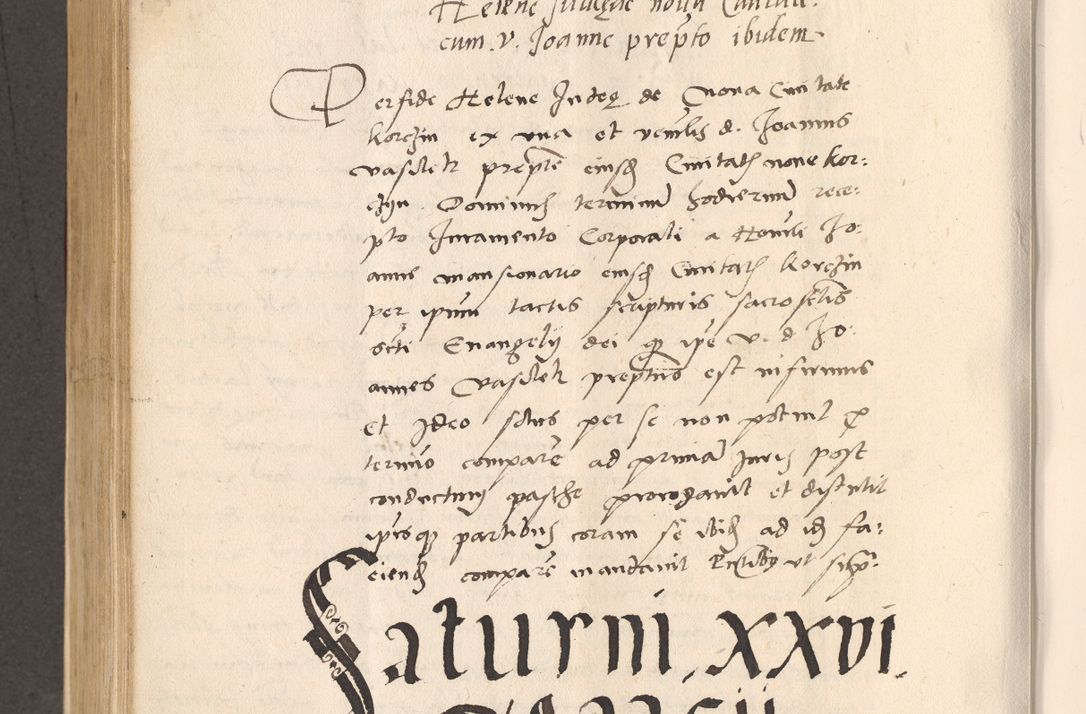 Helene Iudęne novi Civitat.
cum v. Joanne prepto ibidem
Perfide Helene Iudeę de Nova Civitate
Korczin ex una et venlis d. Joannis
Vasilek preptē eiusq Civitatꝭ none Kor:
czyn. Dominus terminū hodiernū rece:
pto Iuramento Corporali a Honli Jo:
anne mansionario eiusq Civitatꝭ Korczin
per ipsum tactis scripturis sacrosctis
scti Evangelij dei qꝫ ipe v. d. Jo:
annes Vasilek preptus est infirmus
et Ideo solus per se non potuit
termio comparē ad primā Juris post
conductum pasche prorogavit et distulit
ipsosqꝫ partibus coram se ibid ad id fa:
ciend comparē mandavit ut
Saturni .xxvi.